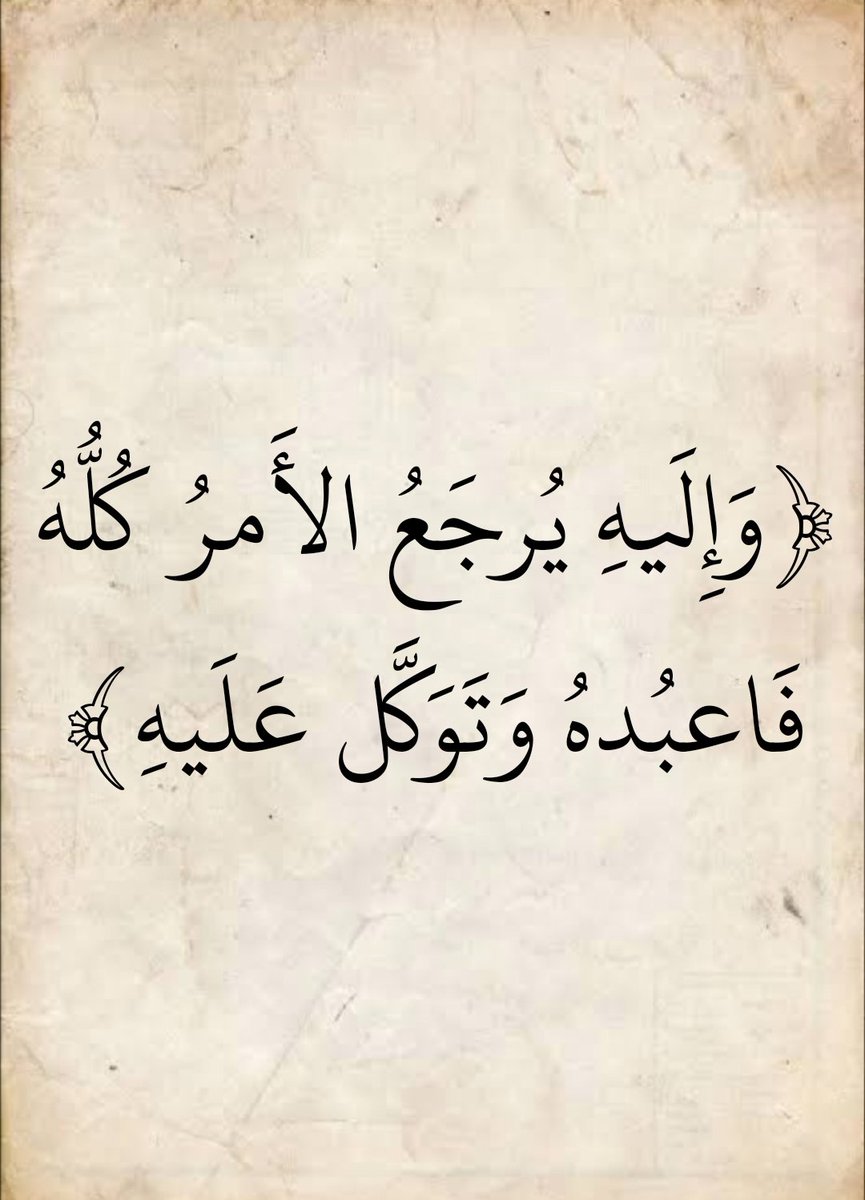 ﴿وَإِلَيهِ يُرجَعُ الأَمرُ كُلُّهُ
فَاعبُدهُ وَتَوَكَّل عَلَيهِ﴾